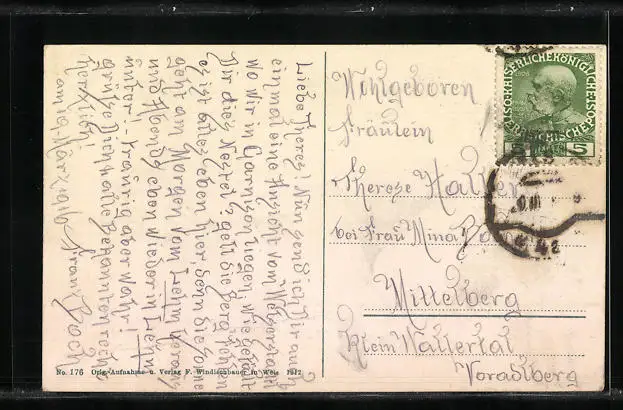 Liebe Therese! Nun send ich Dir auch
einmal eine Ansicht vom
wo wir in Garnison liegen. Wie gefällt
Dir dies Nestel? gelt die Berg fehlen
es ist alles eben hier, so die Sonne
geht am Morgen vom Lehm heraus
und Abends eben wieder in Lehm
unter. - traurig aber wahr!
grüße Dich & alle Bekannten recht
herzlich!
am 10. März 1916 Franz
Wohlgeboren
Fräulein
Therese Haller
bei Frau Mina
Mittelberg
Klein Wallertal
Voradlberg
KAISERLICHE KÖNIGLICHE ÖSTERREICHISCHE
1908
5
No. 176 Orig.-Aufnahme u. Verlag F. Windischbauer in Wels 1912